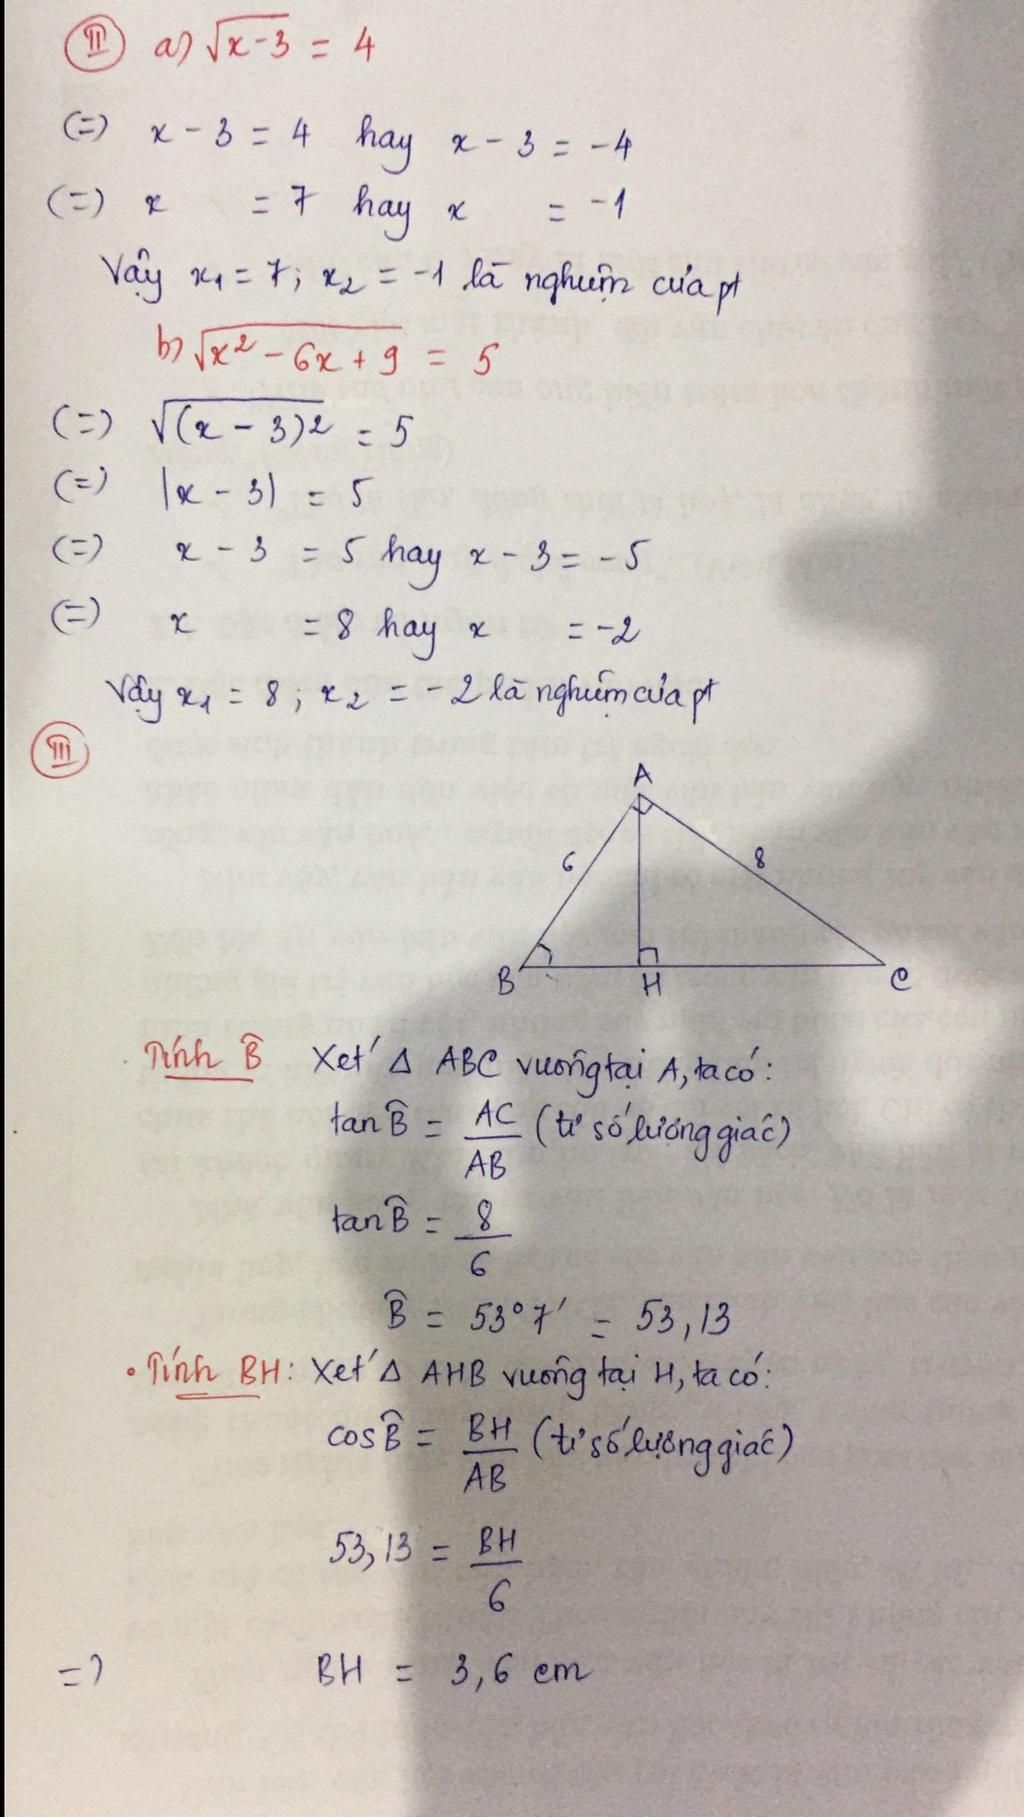 II a) √(x-3) = 4
(=) x - 3 = 4 hay x - 3 = -4
(=) x = 7 hay x = -1
Vậy x₁ = 7; x₂ = -1 là nghiệm của pt
b) √(x² - 6x + 9) = 5
(=) √((x - 3)²) = 5
(=) |x - 3| = 5
(=) x - 3 = 5 hay x - 3 = -5
(=) x = 8 hay x = -2
Vậy x₁ = 8; x₂ = -2 là nghiệm của pt
III
A
6 8
B H C
Tính B̂ Xét Δ ABC vuông tại A, ta có:
tan B̂ = AC/AB (tỉ số lượng giác)
tan B̂ = 8/6
B̂ = 53°7' = 53,13
• Tính BH: Xét Δ AHB vuông tại H, ta có:
cos B̂ = BH/AB (tỉ số lượng giác)
53,13 = BH/6
=) BH = 3,6 cm